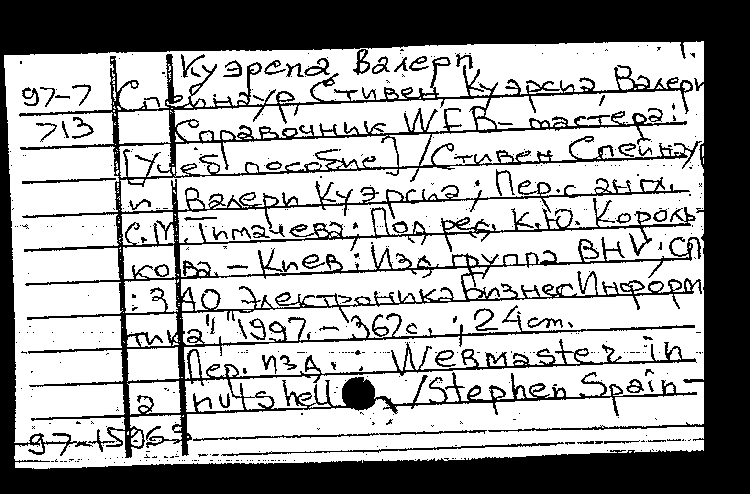 Куэрсиа Валери 1.
97-7 Спейнаур, Стивен, Куэрсиа, Валери
713 Справочник WEB-мастера:
[Учеб. пособие] / Стивен Спейнаур
и Валери Куэрсиа; Пер. с англ.
С.М. Тимачева; Под ред. К.Ю. Король-
кова. - Киев: Изд. группа BHV; СП
: ЗАО ЭлектроникаБизнесИнформ
тика", 1997. - 367с. ; 24cm.
Пер. изд. : Webmaster in
a nutshell / Stephen Spain-
97-15965